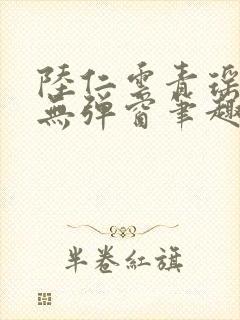 陸仁雲青瑤
無彈窗筆趣
半卷紅旗